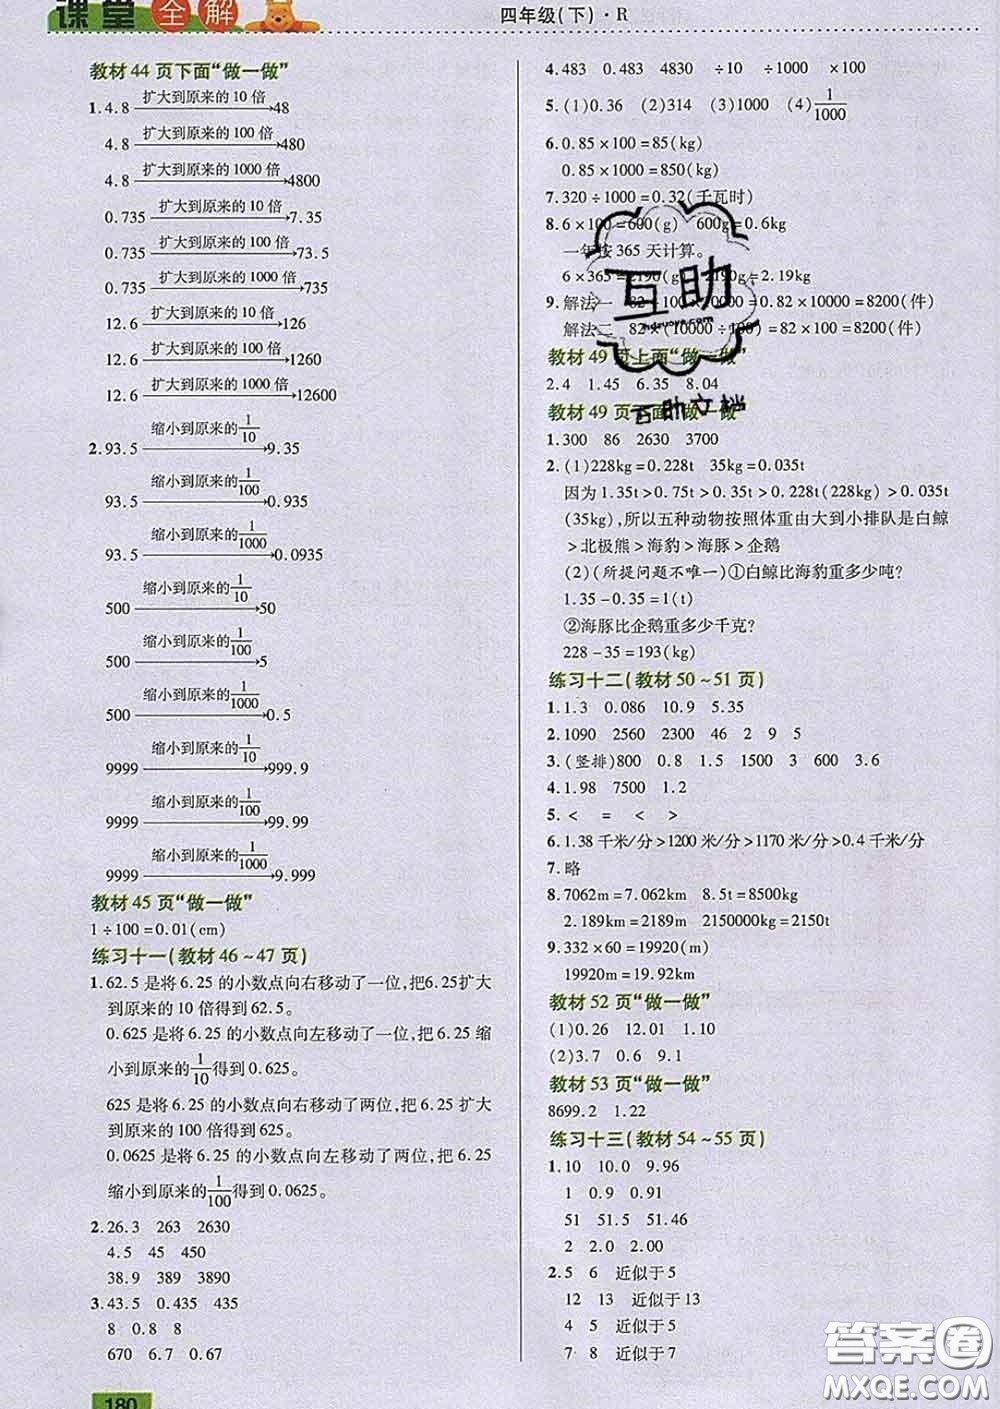 课堂全解
四年级(下)·R
教材 44 页下面“做一做”
1. 4.8 扩大到原来的 10 倍→48
4.8 扩大到原来的 100 倍→480
4.8 扩大到原来的 1000 倍→4800
0.735 扩大到原来的 10 倍→7.35
0.735 扩大到原来的 100 倍→73.5
0.735 扩大到原来的 1000 倍→735
12.6 扩大到原来的 10 倍→126
12.6 扩大到原来的 100 倍→1260
12.6 扩大到原来的 1000 倍→12600
2. 93.5 缩小到原来的1/10→9.35
93.5 缩小到原来的1/100→0.935
93.5 缩小到原来的1/1000→0.0935
500 缩小到原来的1/10→50
500 缩小到原来的1/100→5
500 缩小到原来的1/1000→0.5
9999 缩小到原来的1/10→999.9
9999 缩小到原来的1/100→99.99
9999 缩小到原来的1/1000→9.999
教材 45 页“做一做”
1÷100=0.01(cm)
练习十一(教材 46～47 页)
1. 62.5 是将 6.25 的小数点向右移动了一位,把6.25扩大
到原来的 10 倍得到 62.5。
0.625 是将 6.25 的小数点向左移动了一位,把 6.25 缩
小到原来的1/10得到 0.625。
625 是将 6.25 的小数点向右移动了两位,把 6.25 扩大
到原来的 100 倍得到 625。
0.0625 是将 6.25 的小数点向左移动了两位,把 6.25
缩小到原来的1/100得到 0.0625。
2. 26.3 263 2630
4.5 45 450
38.9 389 3890
3. 43.5 0.435 435
8 0.8 8
670 6.7 0.67
180
4. 483 0.483 4830 ÷10 ÷1000 ×100
5. (1)0.36 (2)314 (3)1000 (4)1/1000
6. 0.85×100=85(kg)
0.85×1000=850(kg)
7. 320÷1000=0.32(千瓦时)
8. 6×100=600(g) 600g=0.6kg
一年按 365 天计算。
6×365=2190(g) 2190g=2.19kg
9. 解法一 82÷100×10000=0.82×10000=8200(件)
解法二 82×(10000÷100)=82×100=8200(件)
教材 49 页上面“做一做”
2.4 1.45 6.35 8.04
教材 49 页下面“做一做”
1. 300 86 2630 3700
2. (1)228kg=0.228t 35kg=0.035t
因为 1.35t>0.75t>0.35t>0.228t(228kg)>0.035t
(35kg),所以五种动物按照体重由大到小排队是白鲸
>北极熊>海豹>海豚>企鹅
(2)(所提问题不唯一)①白鲸比海豹重多少吨?
1.35-0.35=1(t)
②海豚比企鹅重多少千克?
228-35=193(kg)
练习十二(教材 50～51 页)
1. 1.3 0.086 10.9 5.35
2. 1090 2560 2300 46 2 9 5
3. (竖排)800 0.8 1.5 1500 3 600 3.6
4. 1.98 7500 1.2
5. < = < >
6. 1.38 千米/分>1200 米/分>1170 米/分>0.4 千米/分
7. 略
8. 7062m=7.062km 8.5t=8500kg
2.189km=2189m 2150000kg=2150t
9. 332×60=19920(m)
19920m=19.92km
教材 52 页“做一做”
(1)0.26 12.01 1.10
(2)3.7 0.6 9.1
教材 53 页“做一做”
8699.2 1.22
练习十三(教材 54～55 页)
1. 10 10.0 9.96
1 0.9 0.91
51 51.5 51.46
2 2.0 2.00
2. 5 6 近似于 5
12 13 近似于 13
4 5 近似于 5
7 8 近似于 7
互助
互助文档
答案圈
MXQE.COM